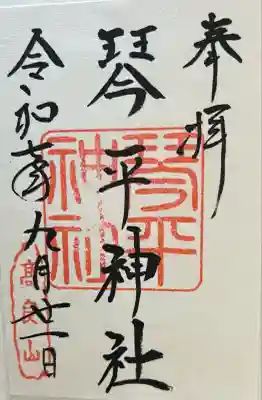 奉拝
琴平神社
令和年九月廿一日
琴平
神社
高良山